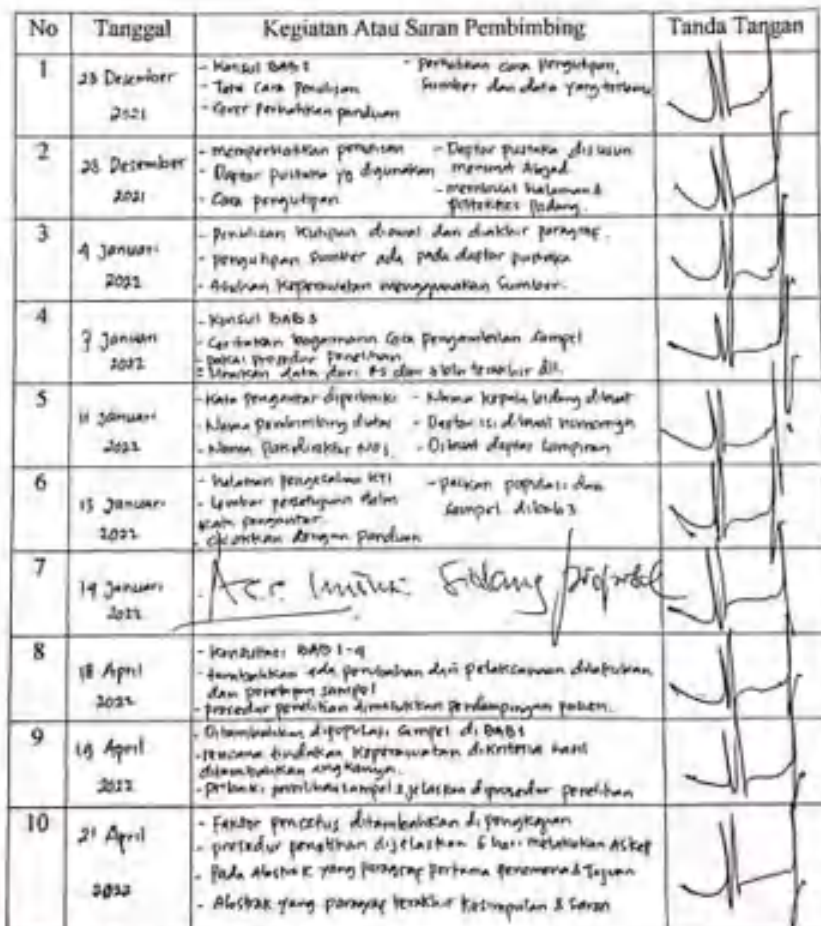 No Tanggal Kegiatan Atau Saran Pembimbing Tanda Tangan
1
23 Desember
2021
- Konsul BAB 1
- Tata Cara Penulisan
- Cover Perhatikan panduan
- Perhatikan cara pengutipan,
Sumber dan data yang terbaru
2
28 Desember
2021
- memperhatikan penulisan
- Daptar pustaka yg digunakan
- Cara pengutipan
- Daptar pustaka disusun
menurut Abjad
- membuat halaman &
Poltekkes Padang.
3
4 Januari
2022
- Penulisan kutipan diawal dan diakhir paragrap.
- pengutipan Sumber ada pada daptar pustaka
- Asuhan Keperawatan menggunakan Sumber.
4
7 Januari
2022
- Konsul BAB 3
- Ceritakan bagaimana Cara pengambilan Sampel
- pakai prosedur Penelitian
- Uraikan data dari RS dan 3 bln terakhir dll.
5
11 Januari
2022
- Kata Pengantar diperbaiki
- Nama Pembimbing diatas
- Nama
- Nama kepala bidang dibuat
- Daptar isi dibuat nomornya
- Dibuat daptar Lampiran
6
13 Januari
2022
- halaman pengesahan KTI
- Lembar persetujuan
kata pengantar.
- cocokkan dengan panduan
- populasi dan
Sampel. dibab 3
7
14 Januari
2022
Acc Sidang proposal
8
18 April
2022
- Konsultasi BAB 1-4
- tambahkan ada perubahan dari pelaksanaan dilakukan
dan penetapan sampel
- prosedur penelitian dimasukkan pendampingan pasien.
9
19 April
2022
- Ditambahkan dipopulasi Sampel di BAB
- rencana tindakan Keperawatan dikriteria hasil
ditambahkan angkanya.
- perbaiki pemilihan sampel & jelaskan diprosedur penelitian
10
21 April
2022
- Faktor pencetus ditambahkan di pengkajian
- prosedur penelitian dijelaskan 6 hari melakukan Askep
- Pada Abstrak yang paragrap pertama Fenomena & Tujuan
- Abstrak yang paragrap terakhir Kesimpulan & Saran